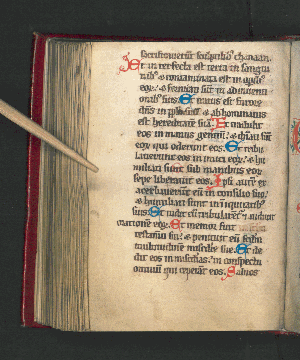 sacrificaverunt sculptilib⁹ chanaan.
Et interfecta est terra in sangui
nib⁹ & contaminata est in opib⁹
eoꝝ. & fornicati sūt in adinventi
onib⁹ suis. Et iratus est furore
dn̄s in pplm̄ suū & abhominatus
est hereditatē suā. Et tradidit
eos in manus gentiū. & dn̄ati sūt
eoꝝ qui oderunt eos. Et tribu
laverunt eos inimici eoꝝ. & hu
miliati sunt sub manibus eoꝝ
sepe liberavit eos. Ipsi autē ex
acerbaverunt eū in consilio suo.
& humiliati sunt in iniquitatib⁹
suis. Et vidit cū tribularent᷑ & audivit
orationē eoꝝ. Et memor fuit
testam̄ti sui. & penituit eū scd̄m
multitudinē mis̄cdie sue. Et de
dit eos in mis̄cdias. in conspectu
omniū qui ceperāt eos. Salvos